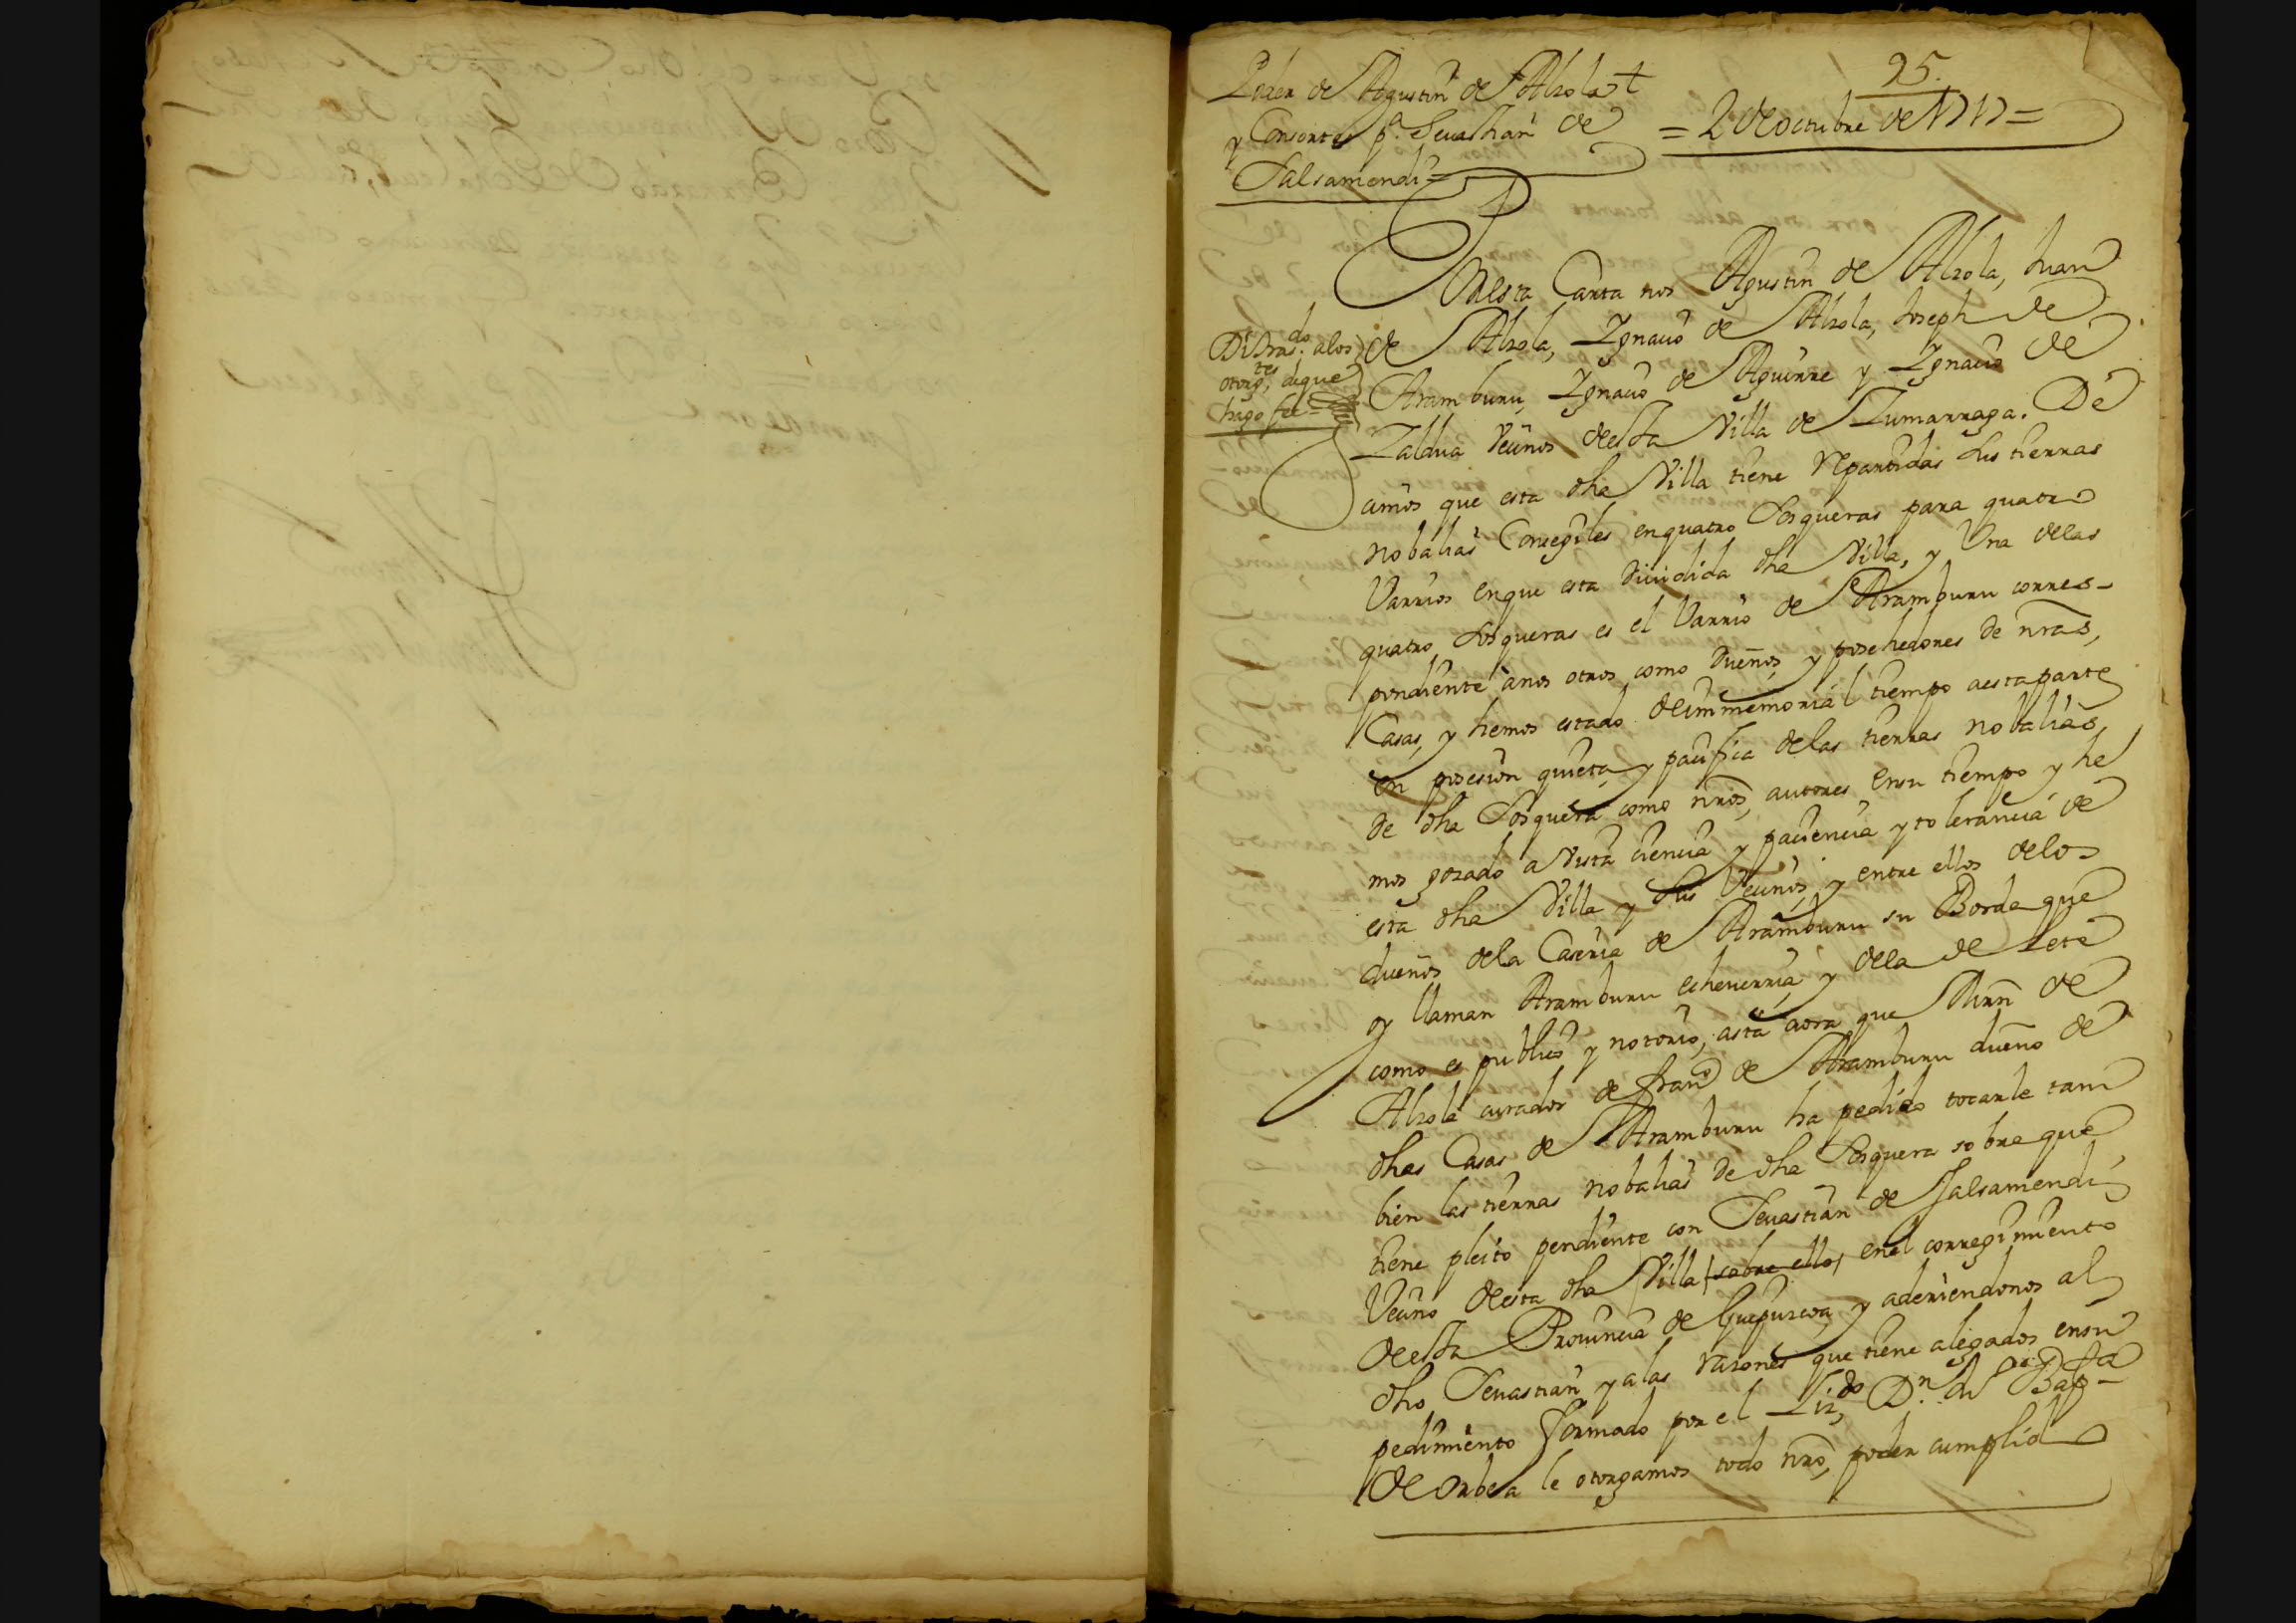 95.
Poder de Agustin de Alzola
y Consortes pª. Sevastian de
Salsamendi =
= 2 de octubre de 1717 =
Por esta Carta nos Agustin de Alzola, Juan
de Alzola, Ygnacio de Alzola, Joseph de
Aramburu, Ygnacio de Aguirre y Ygnacio de
Zaldua Vecinos desta Villa de Zumarraga. De
cimos que esta dha Villa tiene Repartidas sus tierras
nobalias Concegiles en quatro Sosqueras para quatro
Varrios en que esta dividida dha Villa, y Una delas
quatro Sosqueras es el Varrio de Aramburu corres-
pondiente anos otros como dueños y posehedores de nras,
Casas, y hemos estado de immemorial tiempo aesta parte
en posesion quieta y pacifica delas tierras nobalias,
de dha Sosquera como nros, autores ensu tiempo y he
mos gozado a Vista ciencia y paciencia y tolerancia de
esta dha Villa y sus Vecinos, y entre ellos delos
dueños dela Caseria de Aramburu su Borda que
oy llaman Aramburu echeverria y dela de Lete
como es publico y notorio, asta aora que Mrn de
Alzola curador de Franco de Aramburu dueño de
dhas Casas de Aramburu ha pedido tocarle tam
bien las tierras nobalias de dha Sosquera sobre que
tiene pleito pendiente con Sevastian de Salsamendi
Vecino desta dha Villa sobre ello enel corregimiento
desta Provincia de Guipuzcoa, y aderiendonos al
dho Sevastian y alas razones que tiene alegados ensu
pedimiento formado por el Lizdo, Dn. Ju Bapta
de Orbea le otorgamos todo nro, poder cumplido
Di trasdo. alos
otorgtes, deque
hago fee =